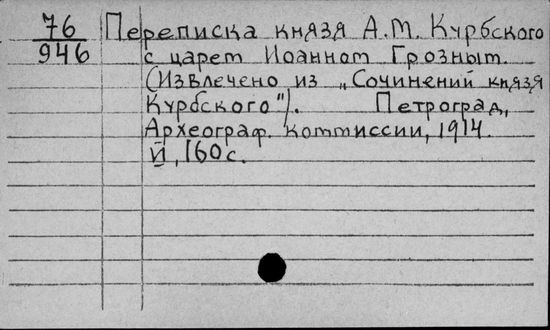 76 Переписка князя А.М. Курбского
946 с царем Иоанном Грозным.
(Извлечено из „Сочинений князя
Курбского"). Петроград,
Археограф. коммиссии, 1914.
VI, 160 с.